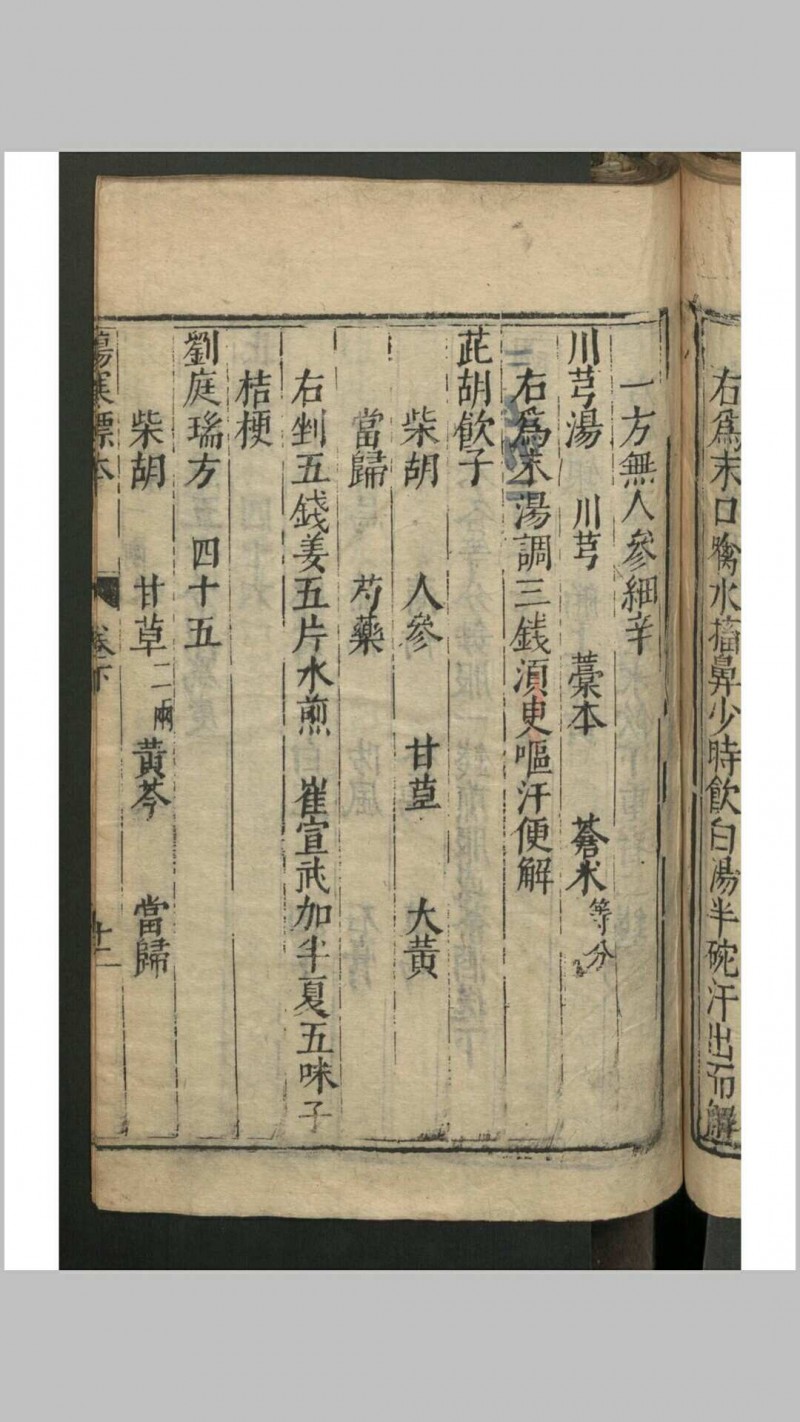 右爲末口噙水搐鼻少時飲白湯半碗汗出而解
一方無人參細辛
川芎湯 川芎 藁本 蒼朮等分
右爲末湯調三錢須臾嘔汗便解
茈胡飲子
柴胡 人參 甘草 大黃
當歸 芍藥
右剉五錢姜五片水煎 崔宣武加半夏五味子
桔梗
劉庭瑞方 四十五
柴胡 甘草二兩 黃芩 當歸
傷寒標本 卷下 廿二